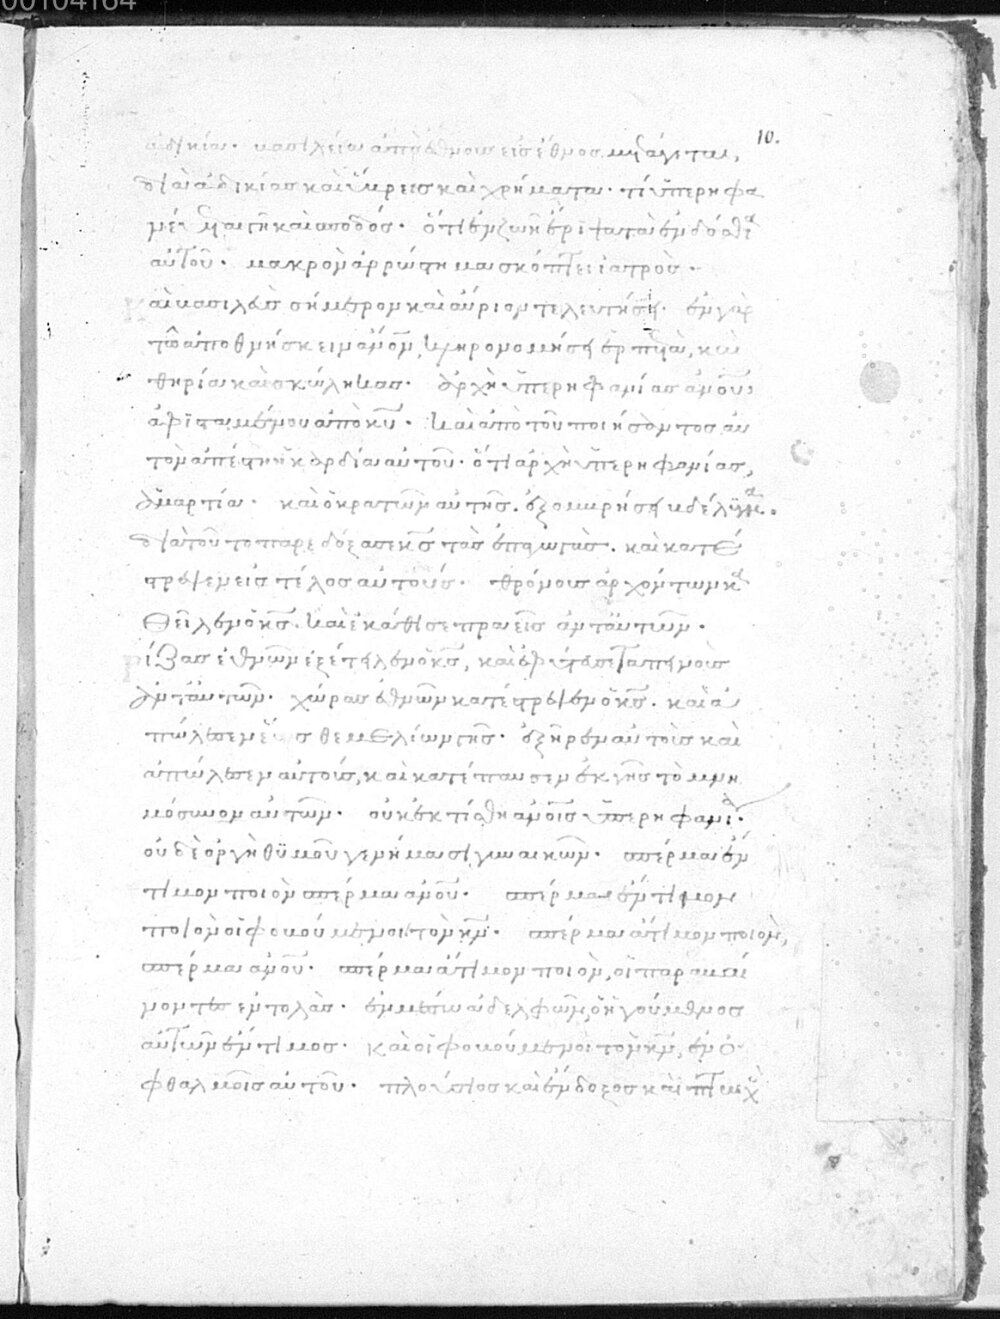 00104164
10.
ἀδικία. βασιλεία ἀπὸ ἔθνους εἰς ἔθνος μετάγεται,
διὰ ἀδικίας καὶ ὕβρεις καὶ χρήματα. τί ὑπερηφα
νεύ γῆ καὶ σποδός. ὅτι ἐν ζωῇ ἔρριψα τὰ ἐνδόσθι
αὐτοῦ. μακρὸν ἀρρώστημα σκόπτει ἰατρός.
καὶ βασιλεὺς σήμερον καὶ αὔριον τελευτήσει. ἐν γὰρ
τῶ ἀποθνήσκειν ἄνον κληρονομήσει ἑρπετὰ, καὶ
θηρία καὶ σκώληκας. ἀρχὴ ὑπερηφανίας ἀνου
ἀφισταμένου ἀπὸ κυ. καὶ ἀπὸ τοῦ ποιήσαντος αὐ
τὸν ἀπέστη ἡ καρδία αὐτοῦ. ὅτι ἀρχὴ ὑπερηφανίας,
ἁμαρτία. καὶ ὁ κρατῶν αὐτῆς. ἐξομβρήσει βδέλυγμα.
διὰ τοῦτο παρεδόξασε κς τὰς ἐπαγωγὰς. καὶ κατέ
στρεψεν εἰς τέλος αὐτούς. θρόνους ἀρχόντων κα
θεῖλεν ὁ κς. καὶ ἐκάθισε πραεῖς ἀντ αὐτῶν.
ῥίζας ἐθνῶν ἐξέτιλεν ὁ κς, καὶ ἐφύτευσε ταπεινοὺς
ἀντ αὐτῶν. χώρας ἐθνῶν κατέστρεψεν ὁ κς. καὶ ἀ
πώλεσεν ἕως θεμελίων γῆς. ἐξῆρεν αὐτοὺς καὶ
ἀπώλεσεν αὐτούς, καὶ κατέπαυσεν ἐκ γῆς τὸ μνη
μόσυνον αὐτῶν. οὐκ ἔκτισθη ἀνοις ὑπερηφανία.
οὐδὲ ὀργὴ θυμοῦ γεννήμασι γυναικῶν. σπέρμα ἔν
τιμον ποῖον σπέρμα ἀνου. σπέρμα ἔντιμον
ποῖον οἱ φοβούμενοι τὸν κν. σπέρμα ἄτιμον ποῖον,
σπέρμα ἀνου. σπέρμα ἄτιμον ποῖον, οἱ παραβαί
νοντες ἐντολάς. ἐν μέσω ἀδελφῶν, ὁ ἡγούμενος
αὐτῶν ἔντιμος. καὶ οἱ φοβούμενοι τὸν κν, ἐν ὀ
φθαλμοῖς αὐτοῦ. πλούσιος καὶ ἔνδοξος καὶ πτωχ